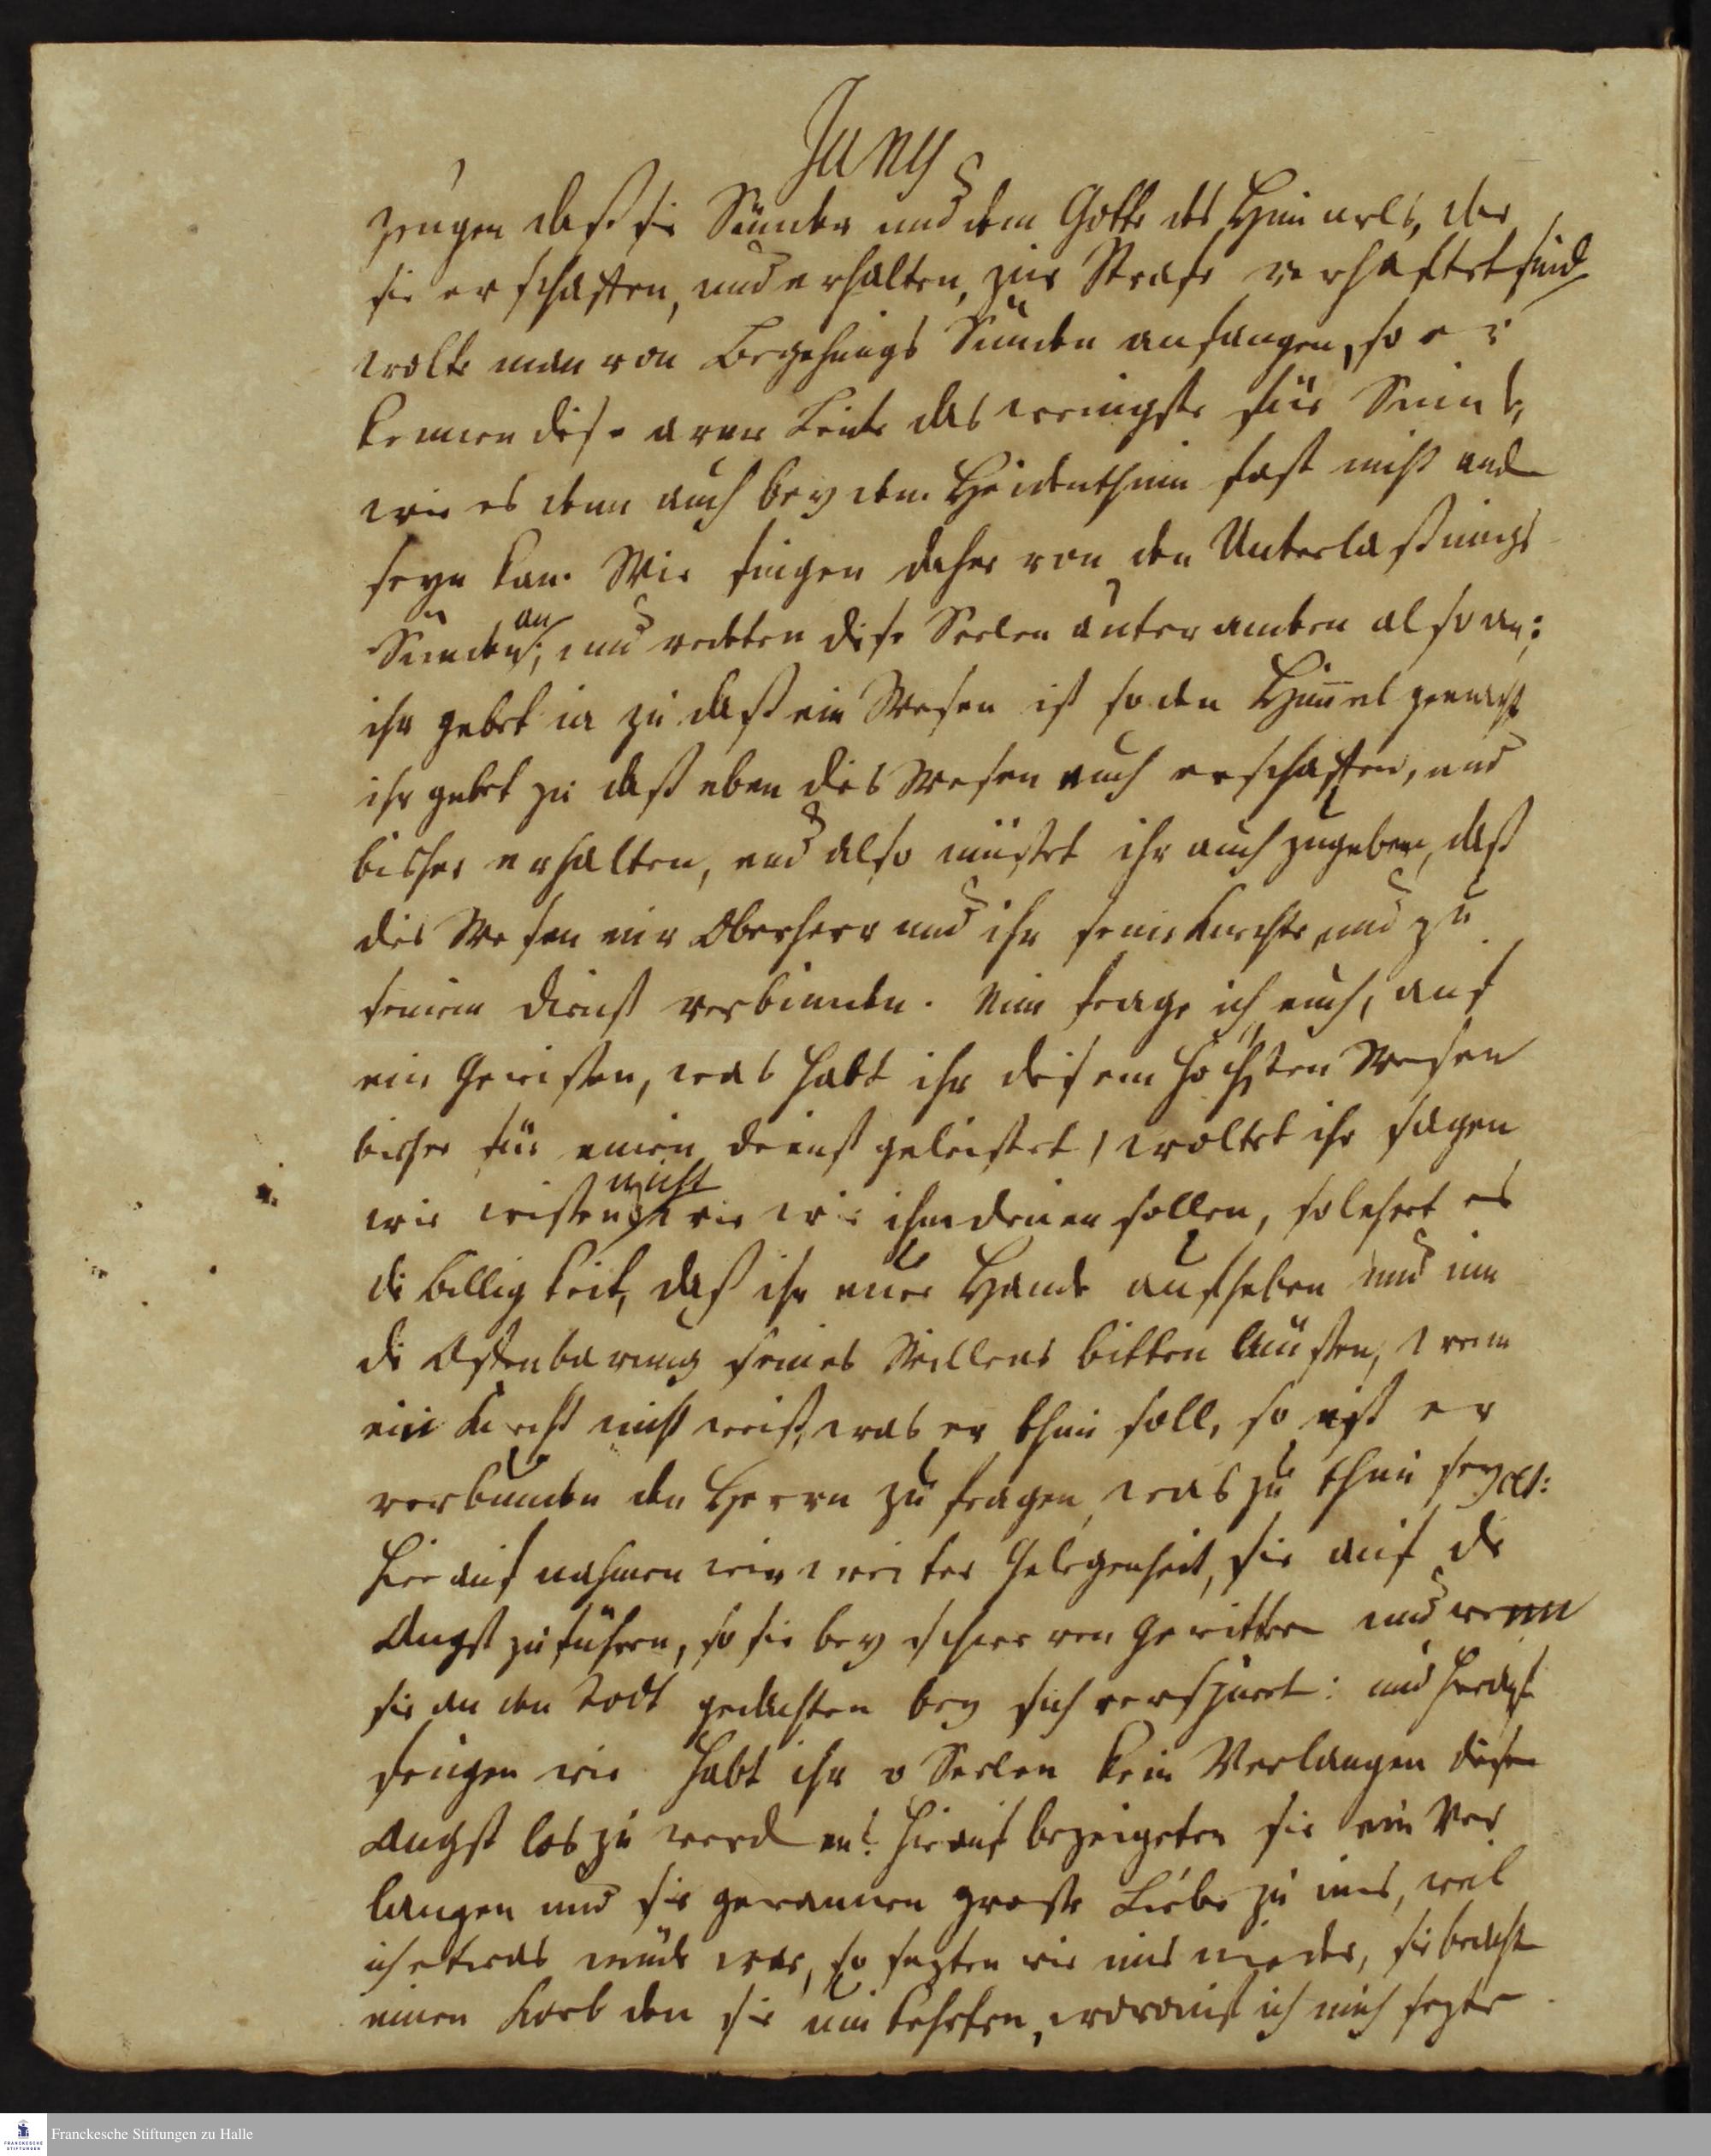 Juny
zeugen daß sie Sünder und dem Gotte des Himmels, der
sie erschaffen, und erhalten, zur Strafe verhaftet sind
wolte man von Begehungs Sünden anfangen, so er
kennen diese arme Leute das wenigste für Sünde,
wie es denn auch bey dem Heidenthum fast nicht anders
seyn kan. Wir fingen daher von den Unterlaßungs
Sünden an, und redeten diese Seelen unter andern also an:
ihr gebet ja zu daß ein Wesen ist so den Him̅el gemacht
ihr gebet zu daß eben dis Wesen euch erschaffen, und
bisher erhalten, und also müstet ihr auch zugeben, daß
dis Wesen eur Oberherr und ihr seine Knechte und zu
seinem Dienst verbunden. Nun frage ich euch, auf
eur Gewißen, was habt ihr diesem höchsten Wesen
bisher für einen Dienst geleistet, woltet ihr sagen
wir wißen nicht wie wir ihm dienen sollen, so lehret es
die billigkeit, daß ihr eure Hände aufheben und um
die Offenbarung seines Willens bitten müsten, wenn
ein Knecht nicht weiß, was er thun soll, so ist er
verbunden den Herrn zu fragen, was zu thun sey etc:
Hierauf nahmen wir weiter Gelegenheit, sie auf die
Angst zu führen, so sie bey schweren Gewittern und wenn
sie an den Todt gedachten bey sich verspüret: und hernach
fingen wir habt ihr o Seelen kein Verlangen dieser
Angst los zu werden? Hierauf bezeigeten sie ein Ver
langen und sie gewannen große Liebe zu uns, weil
ich etwas müde war, so sezten wir uns nieder, sie brachten
einen Korb den sie umkehrten, worauf ich mich sezte
Franckesche Stiftungen zu Halle